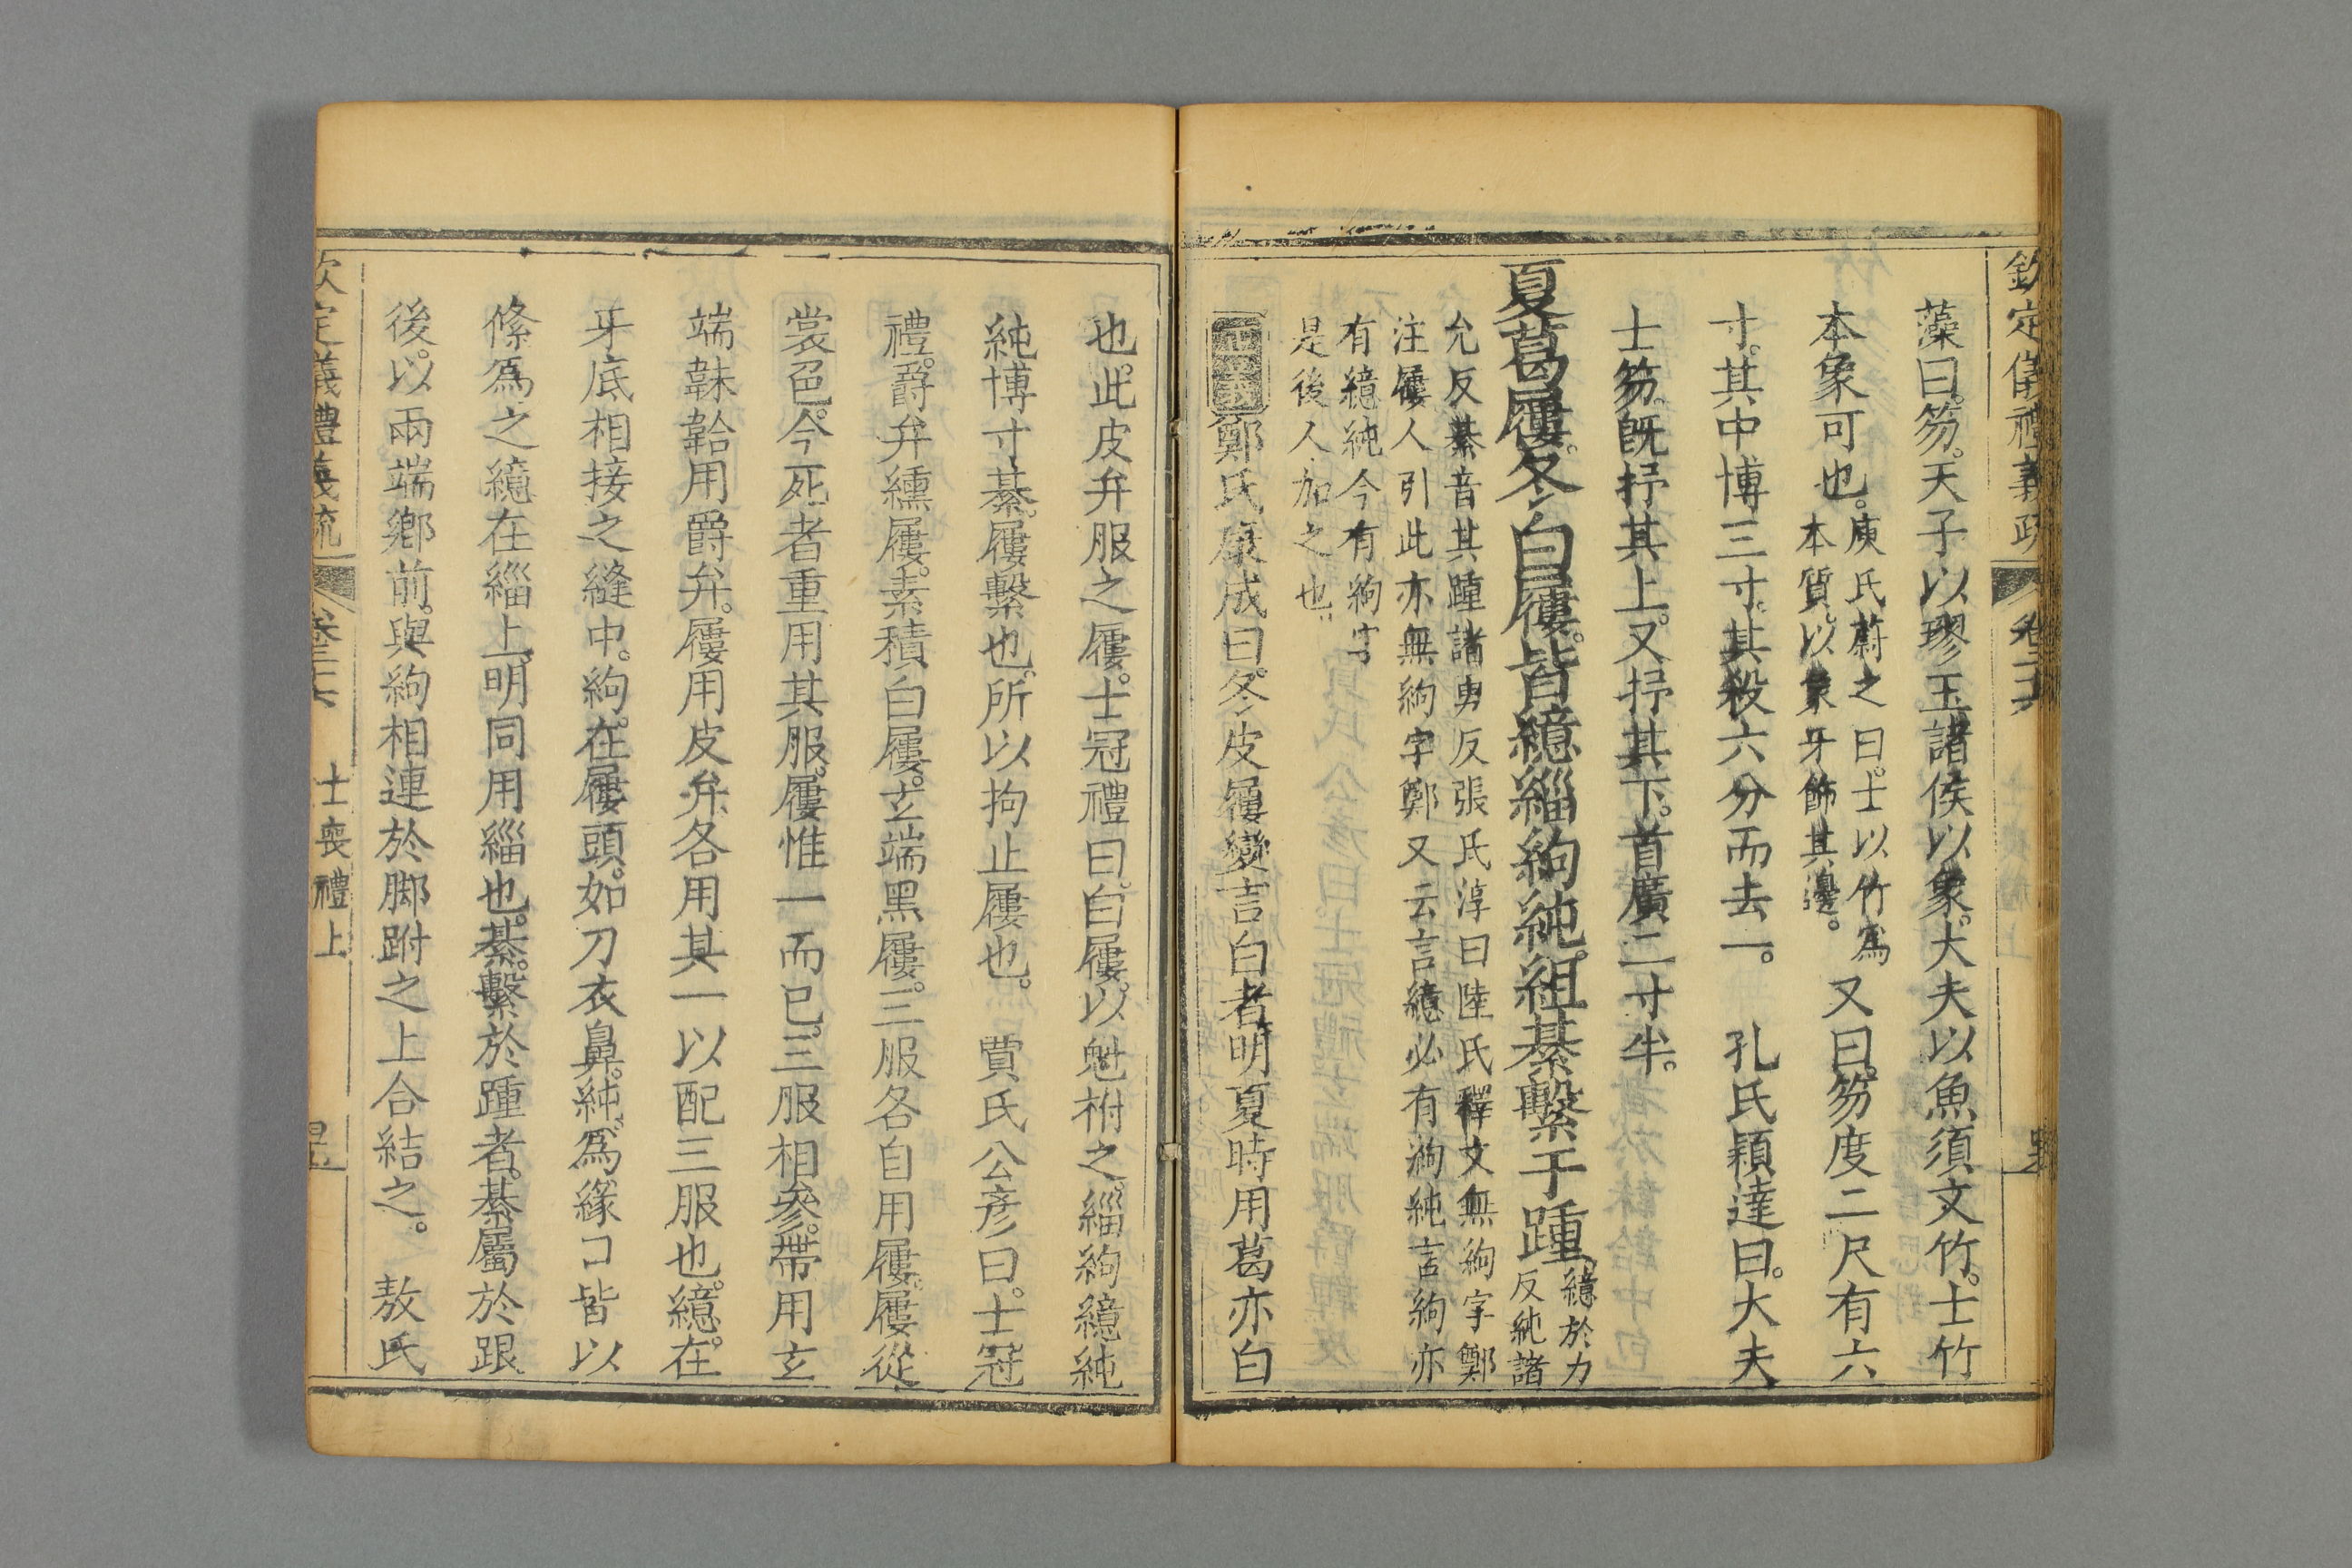 欽定儀禮義疏 卷二十六
藻曰。笏。天子以璆玉。諸侯以象。大夫以魚須文竹。士竹
本象可也。庾氏蔚之曰。士以竹爲本質。以象牙飾其邊。又曰。笏度二尺有六
寸。其中博三寸。其殺六分而去一。 孔氏穎達曰。大夫
士笏。旣抒其上。又抒其下。首廣二寸半。
夏葛屨。冬白屨。皆繶緇絇純。組綦繫于踵。繶於力反純諸
允反綦音其踵諸勇反張氏淳曰陸氏釋文無絇字鄭
注屨人引此亦無絇字鄭又云言繶必有絇純言絇亦
有繶純今有絇字
是後人加之也
鄭氏康成曰。冬皮屨變言白者。明夏時用葛亦白
也。此皮弁服之屨。士冠禮曰。白屨。以魁柎之。緇絇繶純
純博寸。綦。屨繫也。所以拘止屨也。 賈氏公彥曰。士冠
禮。爵弁纁屨。素積白屨。玄端黑屨。三服各自用屨。屨從
裳色。今死者重用其服。屨惟一而已。三服相參。帶用玄
端韎韐用爵弁。屨用皮弁。各用其一以配三服也。繶。在
牙底相接之縫中。絇。在屨頭。如刀衣鼻。純。爲緣口皆以
絛爲之繶在緇上。明同用緇也。綦。繫於踵者。綦屬於跟
後。以兩端鄉前。與絇相連於脚跗之上合結之。 敖氏
欽定儀禮義疏 卷二十六 士喪禮上